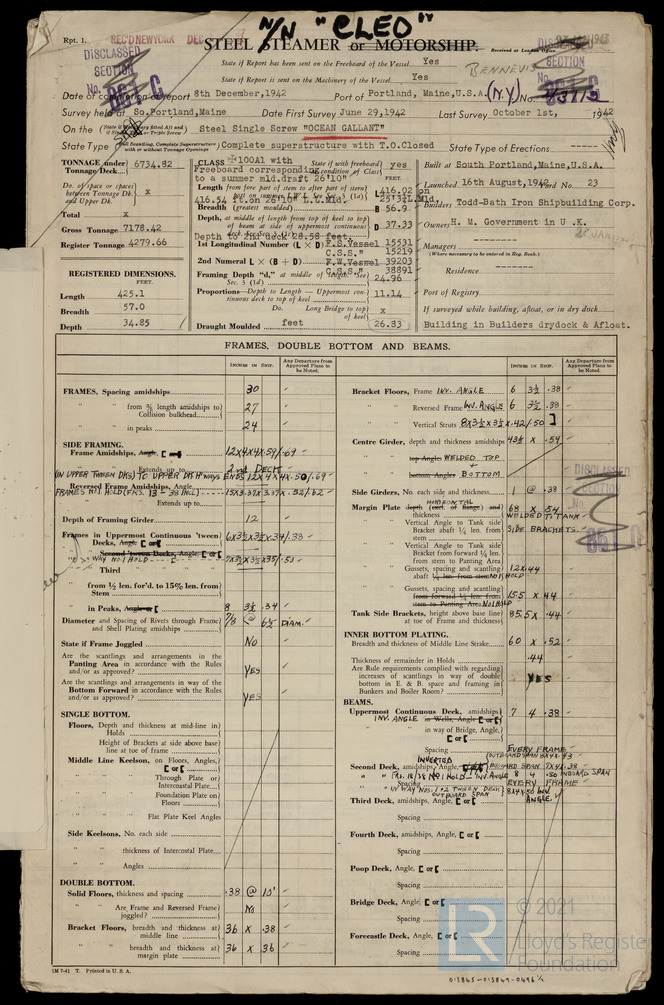 N/N "CLEO"
Rpt. 1.
REC'D NEW YORK DEC
STEEL STEAMER or MOTORSHIP.
Received at London Office
DISCLASSED
SECTION
No.
State if Report has been sent on the Freeboard of the Vessel Yes
State if Report is sent on the Machinery of the Vessel Yes
BENNEVIS
DISCLASSED
SECTION
Date of completion of report 8th December, 1942 Port of Portland, Maine, U.S.A. (N.Y.) No.
Survey held at So. Portland, Maine Date First Survey June 29, 1942 Last Survey October 1st, 1942
On the Steel Single Screw "OCEAN GALLANT"
State Type Complete superstructure with T.O. Closed State Type of Erections -----
TONNAGE under Tonnage Deck 6734.82
No. of space or spaces between Tonnage Dk. and Upper Dk. x
Total x
Gross Tonnage 7178.42
Register Tonnage 4279.66
REGISTERED DIMENSIONS.
FEET.
Length 425.1
Breadth 57.0
Depth 34.85
CLASS ✠100A1 with State if with freeboard condition of Class yes
Freeboard corresponding
to a summer mld. draft 26'10"
Length from fore part of stem to after part of stern 416.02 on
Breadth (greatest moulded) B 56.9
Depth, at middle of length from top of keel to top of beam at side of uppermost continuous D 37.33
Depth to 2nd deck 28.58 feet.
1st Longitudinal Number (L × D) F.S. Vessel 15531
C.S.S." 15219
2nd Numeral L × (B + D) F.W. Vessel 39203
C.S.S." 38891
Framing Depth "d," at middle of length. See Sec. 3 (1d) 24.96
Proportions—Depth to Length—Uppermost continuous deck to top of keel 11.14
Do. Long Bridge to top of keel x
Draught Moulded feet 26.83
Built at South Portland, Maine, U.S.A.
Launched 16th August, 1942 Yard No. 23
Builders Todd-Bath Iron Shipbuilding Corp.
Owners H. M. Government in U.K.
Managers --------
(Where necessary to be entered in Reg. Book.)
Residence -------
Port of Registry
If surveyed while building, afloat, or in dry dock
Building in Builders drydock & Afloat.
FRAMES, DOUBLE BOTTOM AND BEAMS.
INCHES IN SHIP.
Any Departure from Approved Plans to be Noted.
INCHES IN SHIP.
Any Departure from Approved Plans to be Noted.
FRAMES, Spacing amidships 30
" " from ⅗ length amidships to Collision bulkhead 27
" " in peaks 24
SIDE FRAMING.
Frame Amidships, Angle, [ or [ 12x4x4x.59/.69
" " Extends up to 2nd DECK
(IN UPPER TWEEN DKS) TO UPPER DK H'ways ENDS 12x4x4x.50/.69
Reversed Frame Amidships, Angle
FRAMES NO1 HOLD (FRS. 13 - 38 INCL) 15x3.37x3.37x.52/.62
" " Extends up to
Depth of Framing Girder 12
Frames in Uppermost Continuous 'tween Decks, Angle, [ or [ 6x3½x3½x.34/.38
" " Second 'tween Decks, Angle, [ or [
" " WAY NO1 HOLD
Third " " "
" from ⅕ len. for'd. to 15% len. from Stem
" in Peaks, Angle or [ 8 3½ .34
Diameter and Spacing of Rivets through Frame and Shell Plating amidships 7/8 @ 6½ DIAM.
State if Frame Joggled No
Are the scantlings and arrangements in the Panting Area in accordance with the Rules and/or as approved? YES
Are the scantlings and arrangements in way of the Bottom Forward in accordance with the Rules and/or as approved? YES
SINGLE BOTTOM.
Floors, Depth and thickness at mid-line in Holds
" Height of Brackets at side above base line at toe of frame
Middle Line Keelson, on Floors, Angles, [ or [
" " Through Plate or Intercostal Plate
" " Foundation Plate on Floors
" " Flat Plate Keel Angles
Side Keelsons, No. each side
" " thickness of Intercostal Plate
" " Angles
DOUBLE BOTTOM.
Solid Floors, thickness and spacing .38 @ 10'
" " Are Frame and Reversed Frame joggled? No
Bracket Floors, breadth and thickness at middle line 36 x .38
" " breadth and thickness at margin plate 36 x 36
Bracket Floors, Frame INV. ANGLE 6 3½ .38
" " Reversed Frame INV. ANGLE 6 3½ .38
" " Vertical Struts 8x3½x3½x.42/.50 ]
Centre Girder, depth and thickness amidships 43½ x .54
" " top Angles WELDED TOP
+
" " bottom Angles BOTTOM
Side Girders, No. each side and thickness 1 @ .38
HORIZONTAL
Margin Plate depth (excl. of flange) and thickness 68 x .54
WELDED TO TANK
" " Vertical Angle to Tank side Bracket abaft ¼ len. from stem SIDE BRACKETS
" " Vertical Angle to Tank side Bracket forward ¼ len. from stem to Panting Area
" " Gussets, spacing and scantling abaft ¼ len. from stem NO1 HOLD 12x.44
" " Gussets, spacing and scantling forward ¼ len. from stem to Panting Area NO1 HOLD 15.5 x .44
Tank Side Brackets, height above base line at toe of Frame and thickness 85.5 x .44
INNER BOTTOM PLATING.
Breadth and thickness of Middle Line Strake 60 x .52
Thickness of remainder in Holds .44
Are Rule requirements complied with regarding increases of scantlings in way of double bottom in E. & B. space and framing in Bunkers and Boiler Room? YES
BEAMS.
Uppermost Continuous Deck, amidships 7 4 .38
INV. ANGLE in Wells, Angle [ or [
" " in way of Bridge, Angle [ or [
Spacing EVERY FRAME
INVERTED
Second Deck, amidships, Angle, [ or [
NO1 HOLD INV. ANGLE 8 4 .50 INBOARD SPAN
Spacing EVERY FRAME
" " WAY NOS. 1+2 TWEEN DECK 8x4x.50 INV.
OUTBOARD SPAN ANGLE
Third Deck, amidships, Angle, [ or [
Spacing
Fourth Deck, amidships, Angle, [ or [
Spacing
Poop Deck, Angle, [ or [
Spacing
Bridge Deck, Angle, [ or [
Spacing
Forecastle Deck, Angle, [ or [
Spacing
1M 7-41 T. Printed in U. S. A.
LR © 2021
Lloyd's Register
Foundation
013865-013869-0496 ¼